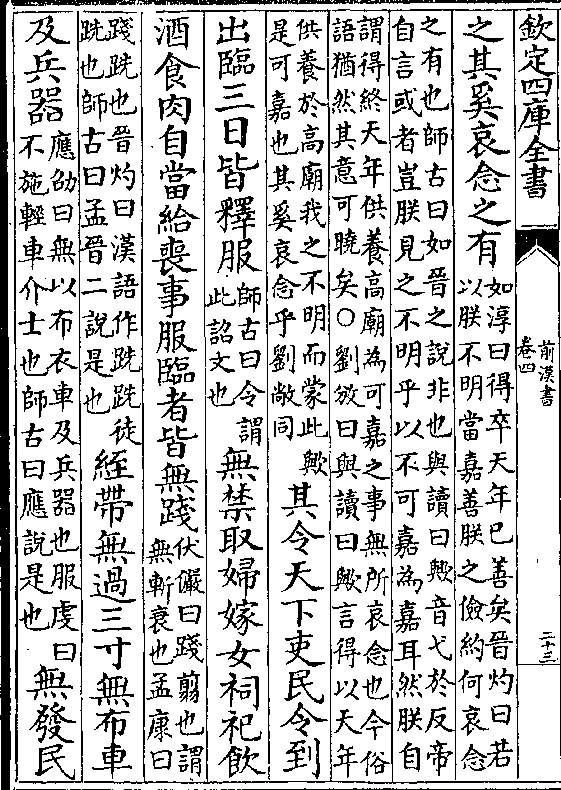 欽定四庫全書
前漢書
卷四
二十三
之其奚哀念之有
如淳曰得卒天年已善矣晉灼曰若
以朕不明當嘉善朕之儉約何哀念
之有也師古曰如晉之說非也與讀曰歟音弋於反帝
自言或者豈朕見之不明乎以不可嘉為嘉耳然朕自
謂得終天年供養高廟為可嘉之事無所哀念也今俗
語猶然其意可曉矣○劉攽曰與讀曰歟言得以天年
供養於高廟我之不明而蒙此歟
是可嘉也其奚哀念乎劉敞同
其令天下吏民令到
出臨三日皆釋服
師古曰令謂
此詔文也
無禁取婦嫁女祠祀飲
酒食肉自當給喪事服臨者皆無踐
伏儼曰踐翦也謂
無斬衰也孟康曰
踐跣也晉灼曰漢語作跣跣徒
跣也師古曰孟晉二說是也
絰帶無過三寸無布車
及兵器
應劭曰無以布衣車及兵器也服虔曰
不施輕車介士也師古曰應說是也
無發民